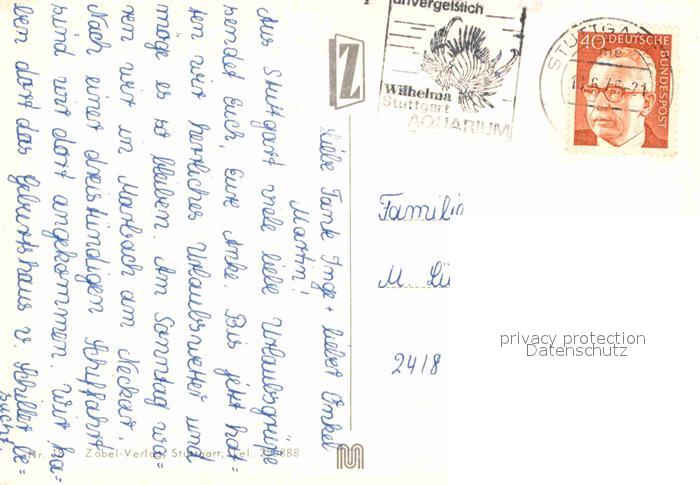 unvergeßlich
Wilhelma
Stuttgart
AQUARIUM
STUTTGART
40 DEUTSCHE
BUNDESPOST
Z
Liebe Tante Inge + lieber Onkel
Martin!
Aus Stuttgart viele liebe Urlaubsgrüße
sendet Euch, Eure Anke. Bis jetzt hat=
ten wir herrliches Urlaubswetter und
möge es so bleiben. Am Sonntag wa=
ren wir in Marbach am Neckar.
Nach einer dreistündigen Schiffahrt
sind wir dort angekommen. Wir ha=
ben dort das Geburtshaus v. Schiller be=
sucht.
Familie
M. Lü
2418
privacy protection
Datenschutz
Zobel-Verlag, Stuttgart, Tel.